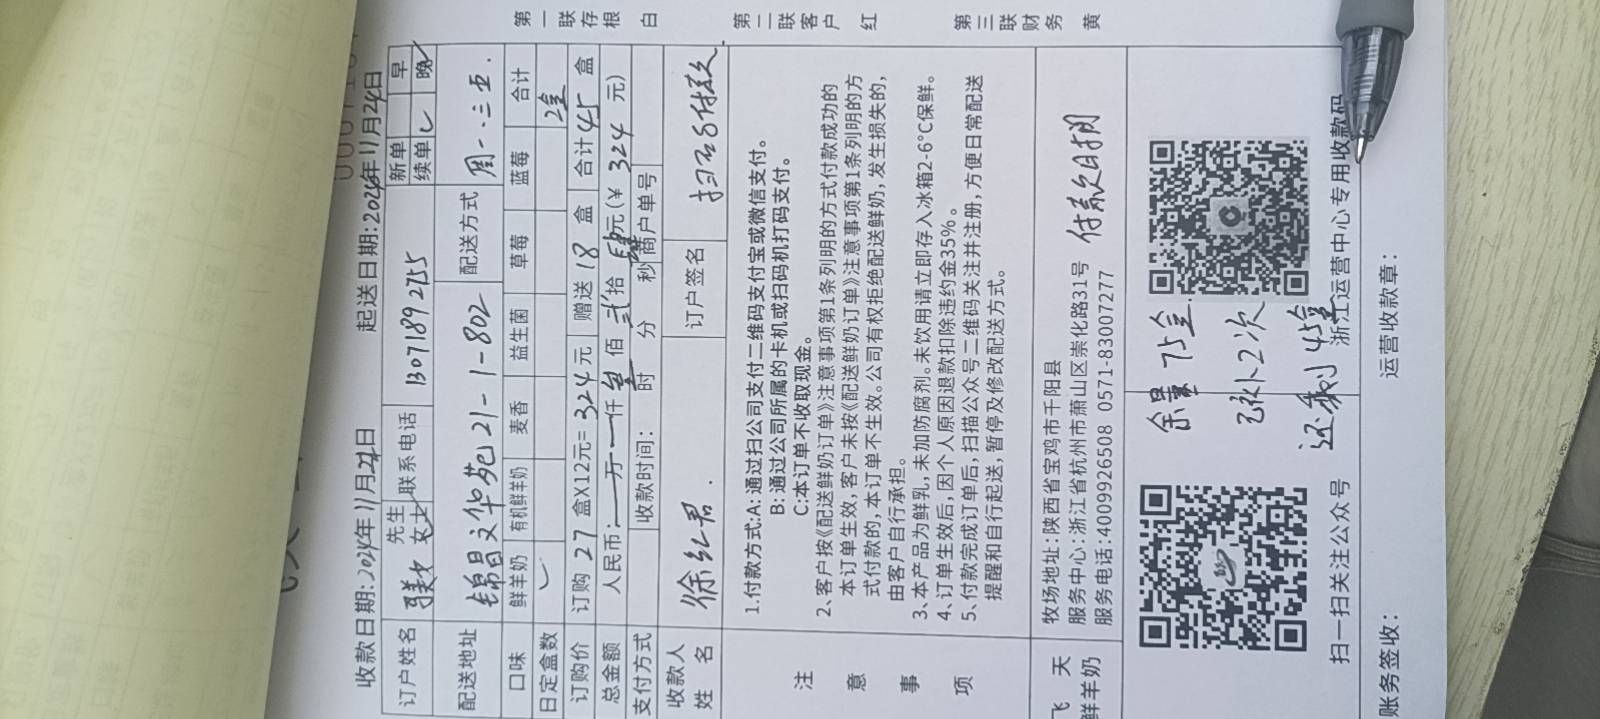 收款日期:2024年11月24日 起送日期:2024年11月24日
订户姓名 先生 女士 联系电话 13071892755 新单 续单 ✓ 早 晚
配送地址 锦昌文华苑21-1-802 配送方式 周一·三·五.
口味 鲜羊奶 有机鲜羊奶 麦香 益生菌 草莓 蓝莓 合计
日定盒数 ✓ 2盒
订购价 订购 27 盒X12元= 324元 赠送 18 盒 合计 45 盒
总金额 人民币: 万 仟 叁 佰 贰 拾 肆 元(¥ 324 元)
支付方式 收款时间: 时 分 秒 商户单号
收款人姓名 徐红君. 订户签名 扫码付款
注意事项
1.付款方式:A:通过扫公司支付二维码支付宝或微信支付。
B:通过公司所属的卡机或扫码机打码支付。
C:本订单不收取现金。
2、客户按《配送鲜奶订单》注意事项第1条列明的方式付款成功的
本订单生效,客户未按《配送鲜奶订单》注意事项第1条列明的方
式付款的,本订单不生效。公司有权拒绝配送鲜奶,发生损失的,
由客户自行承担。
3、本产品为鲜乳,未加防腐剂。未饮用请立即存入冰箱2-6°C保鲜。
4、订单生效后,因个人原因退款扣除违约金35%。
5、付款完成订单后,扫描公众号二维码关注并注册,方便日常配送
提醒和自行起送,暂停及修改配送方式。
飞天
鲜羊奶
牧场地址:陕西省宝鸡市千阳县
服务中心:浙江省杭州市萧山区崇化路31号
服务电话:4009926508 0571-83007277
付款次日扫
余量 75盒.
已补2次
还剩45盒
扫一扫关注公众号
浙江运营中心专用收款码
账务签收: 运营收款章:
第一联存根 白
第二联客户 红
第三联财务 黄